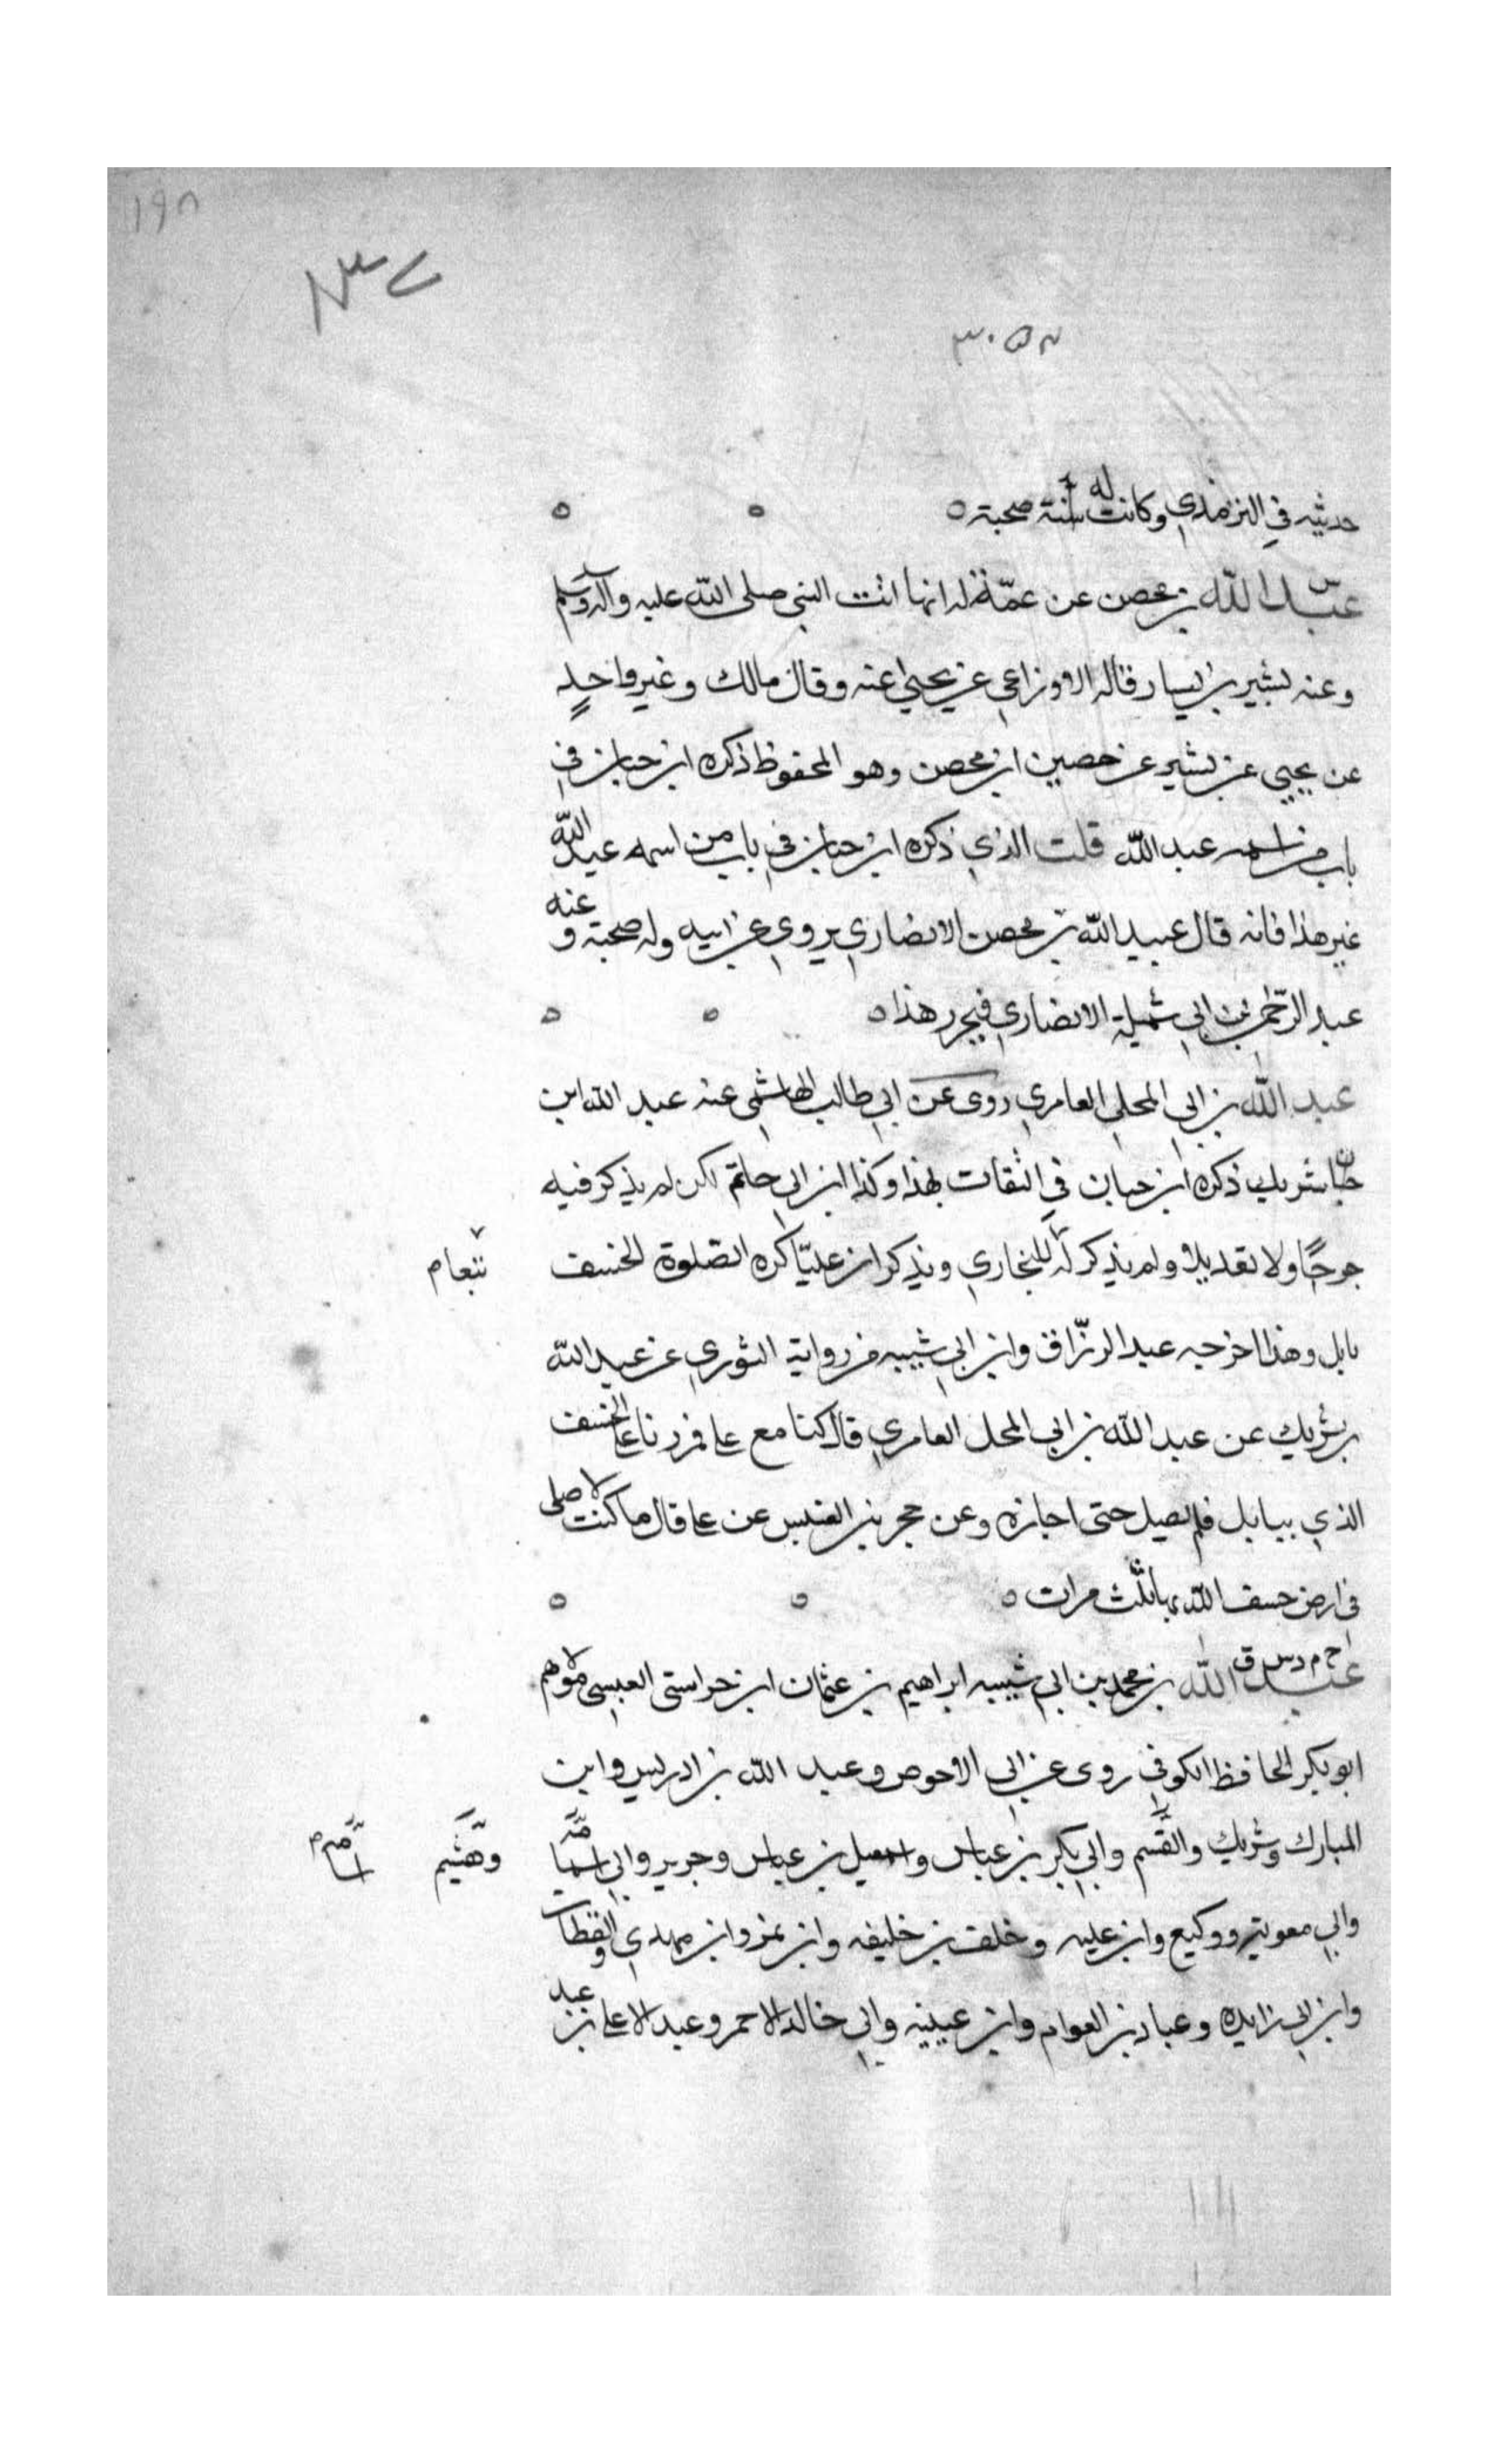 ١٩٨
٣٠٥٢
حديثه في الترمذي وكانت له صحبة
عبد الله بن محصن عن عمة له انها اتت النبي صلى الله عليه وآله وسلم
وعنه بشير بن يسار قاله الاوزاعي عن يحيى عنه وقال مالك وغير واحد
عن يحيى عن بشير عن حصين ابن محصن وهو المحفوظ ذكره ابن حبان في
باب من اسمه عبد الله قلت الذي ذكره ابن حبان في باب من اسمه عبيد الله
غير هذا فانه قال عبيد الله بن محصن الانصاري يروي عن ابيه وله صحبة وعنه
عبد الرحمن بن ابي شميلة الانصاري فيحرر هذا
عبد الله بن ابي المحلي العامري روى عن ابي طالب الهاشمي عنه عبد الله ابن
شريك ذكره ابن حبان في الثقات بهذا وكذا ابن ابي حاتم لكن لم يذكر فيه
جرحًا ولا تعديلا ولم يذكر له البخاري ويذكر ان عليّا كره الصلوة لخسف
بابل وهذا اخرجه عبد الرزّاق وابن ابي شيبه من رواية الثوري عن عبد الله
بن شريك عن عبد الله بن ابي المحل العامري قال كنا مع علي فمررنا على الخسف
الذي ببابل فلم يصل حتى اجازه وعن حجر بن العنبس عن علي قال ما كنت لاصلي
في ارض خسف الله بها ثلث مرات
خ م د س ق
عبد الله بن محمد بن ابي شيبه ابراهيم بن عثمان ابن خواستي العبسي مولاهم
ابو بكر الحافظ الكوفي روى عن ابي الاحوص وعبد الله بن ادريس وابن
المبارك وشريك والقسم وابي بكر بن عياش واسمعيل بن عياش وجرير وابي اسامة وهشيم
وابي معوية ووكيع وابن عليه وخلف بن خليفه وابن نمير وابن مهدي والقطان
وابن ابي زايده وعباد بن العوام وابن عيينه وابي خالد الاحمر وعبد الاعلى بن عبد